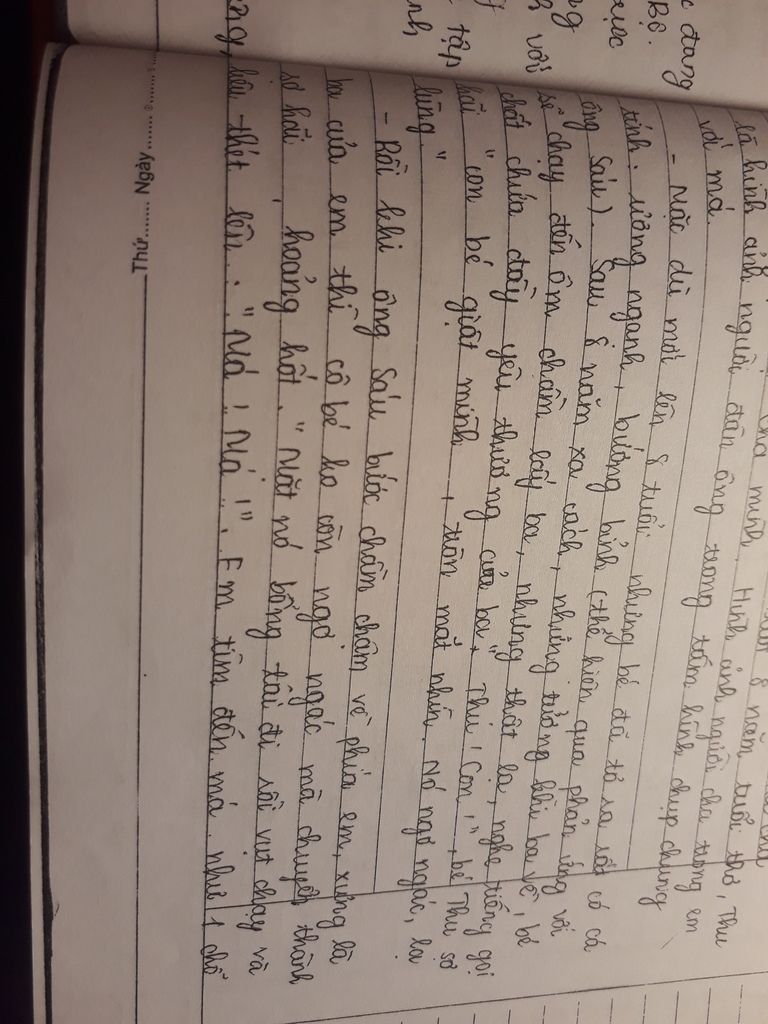 c đang
Bộ.
ng
ược
với
tập
nh
cha mình. Hình ảnh người cha trong em
là hình ảnh người đàn ông trong tấm hình chụp chung
với má.
- Mặc dù mới lên 8 tuổi nhưng bé đã tỏ ra rất có cá
tính: ương ngạnh, bướng bỉnh (thể hiện qua phản ứng với
ông Sáu). Sau 8 năm xa cách, những tưởng khi ba về, bé
sẽ chạy đến ôm chầm lấy ba, nhưng thật lạ, nghe tiếng gọi
chất chứa đầy yêu thương của ba "Thu! Con,", bé Thu sợ
hãi "con bé giật mình, tròn mắt nhìn. Nó ngơ ngác, lạ
lùng."
- Rồi khi ông Sáu bước chầm chậm về phía em, xưng là
ba của em thì cô bé ko còn ngơ ngác mà chuyển thành
sợ hãi, hoảng hốt. "Mặt nó bỗng tái đi rồi vụt chạy và
kêu thét lên: "Má! Má!". Em tìm đến má như 1 chỗ
Thứ........ Ngày........